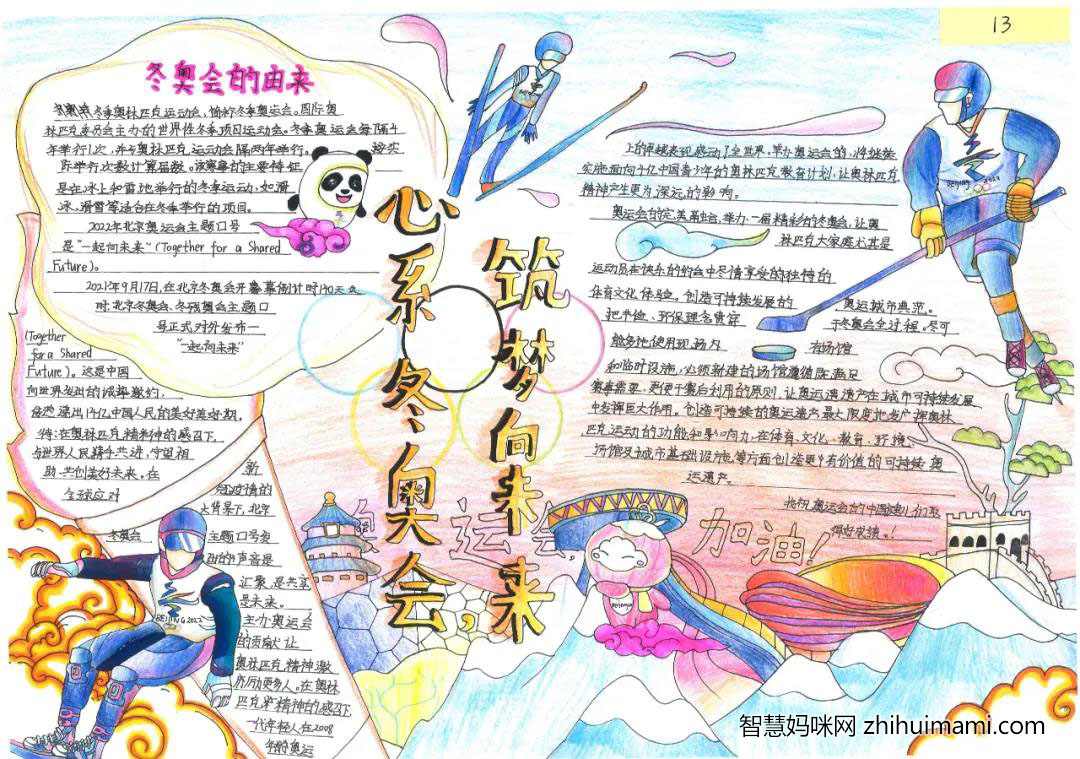 13
冬奥会的由来
冬季奥林匹克运动会,简称冬季奥运会。国际奥
林匹克委员会主办的世界性冬季项目运动会。冬季奥运会每隔4
年举行1次,并与奥林匹克运动会隔两年举行。
按实
际举行次数计算届数。该赛事的主要特征
是在冰上和雪地举行的冬季运动,如滑
冰、滑雪等适合在冬季举行的项目。
2022年北京奥运会主题口号
是“一起向未来”(Together for a Shared
Future)。
2021年9月17日,在北京冬奥会开幕倒计时140天之
时,北京冬奥会、冬残奥会主题口
号正式对外发布一
“一起向未来”
(Together
for a Shared
Future)。这是中国
向世界发出的诚挚邀约,
传递出14亿中国人民的美好美好期
待:在奥林匹克精神的感召下,
与世界人民携手共进、守望相
助、共创美好未来。在
全球应对
新
冠疫情的
大背景下,北京
冬奥会
主题口号发
出的声音是
汇聚,是共享
是未来。
主办奥运会
的贡献让
奥林匹克精神激
励更多人。在奥林
匹克精神的感召下
一代年轻人在2008
年的奥运
心系冬奥会,
筑梦向未来
上的卓越表现感动了全世界,举办奥运会的,将继续
实施面向4亿中国青少年的奥林匹克教育计划,让奥林匹克
精神产生更为深远的影响。
奥运会的完美融合,举办一届精彩的冬奥会,让奥
林匹克大家庭尤其是
运动员在快乐的约会中尽情享受的独特的
体育文化体验。创造可持续发展的
奥运城市典范。
把节俭、环保理念贯穿
于冬奥会全过程。尽可
能多地使用现场内
有场馆
和临时设施,必须新建的场馆遵循既满足
赛事需要,更便于赛后利用的原则,让奥运遗产在城市可持续发展
中发挥巨大作用。创造可持续的奥运遗产最大限度地发挥奥林
匹克运动的功能和影响力,在体育、文化、教育、环境、
场馆及城市基础设施等方面创造更多有价值的可持续奥
运遗产。
祝奥运会的中国健儿们取
得好成绩。!
奥运会,加油!
BEIJING 2022
Beijing 2022
智慧妈咪网 zhihuimami.com